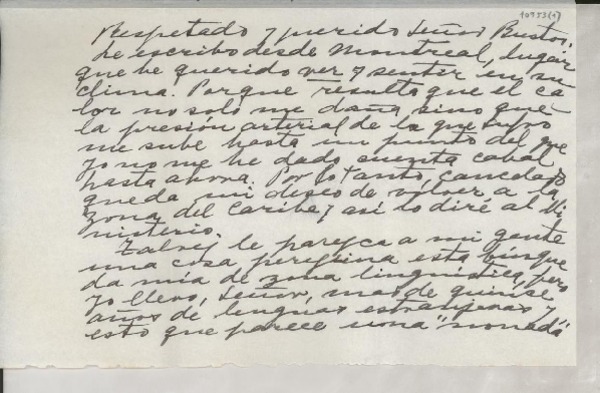 10953(1)
Respetado y querido Señor Bustos:
Le escribo desde Montreal, lugar
que he querido ver y sentir en su
clima. Porque resulta que el ca
lor no solo me daña, sino que
la presión arterial de la que sufro
me sube hasta un punto del que
yo no me he dado cuenta cabal
hasta ahora. Por lo tanto, cancelado
queda mi deseo de volver a la
zona del Caribe y así lo diré al Mi
nisterio.
Talvez le parezca a mi gente
una cosa peregrina esta búsque
da mía de zona lingüística, pero
yo llevo, Señor, mas de quinse
años de lenguas extranjeras y
esto que parece una "nonada"